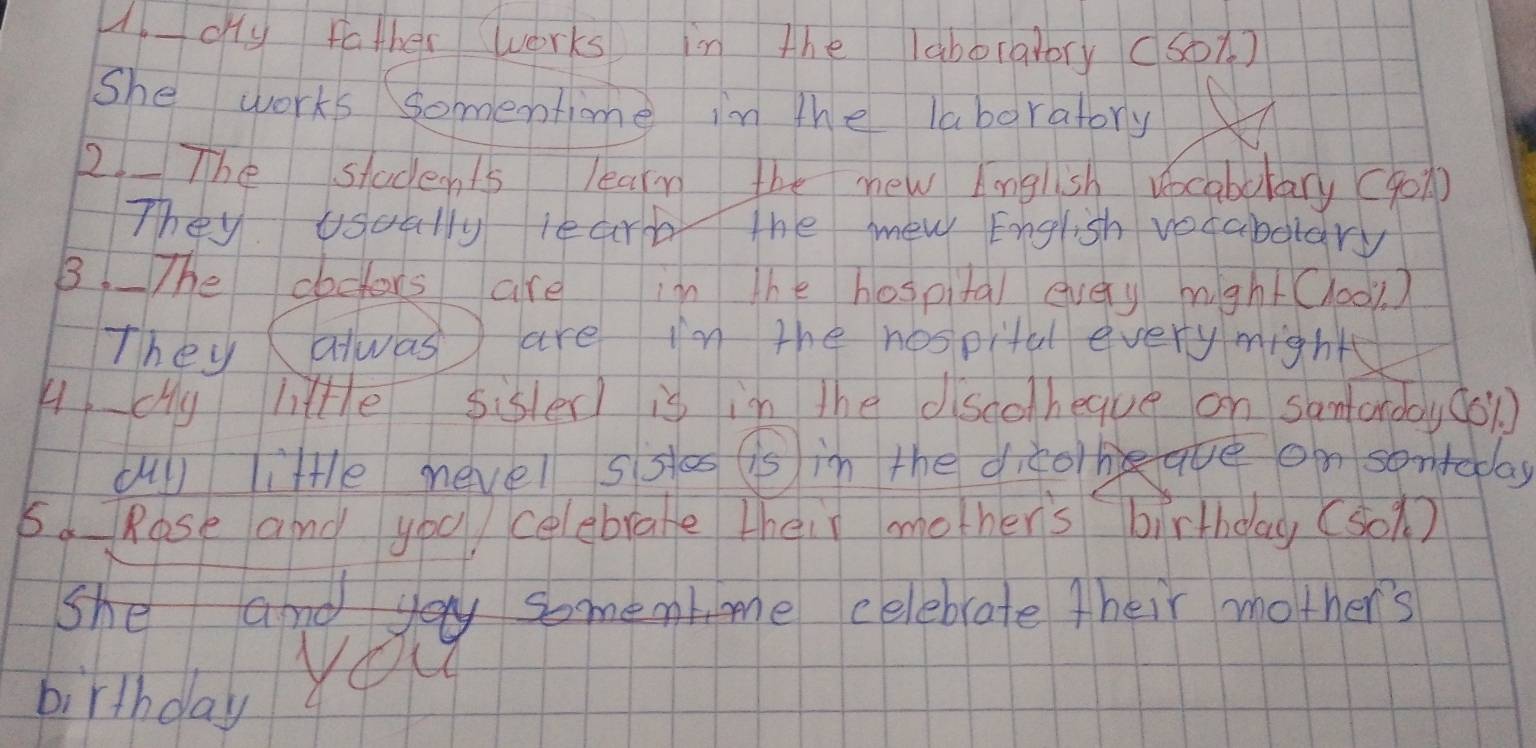 1._ My father works in the laboratory (50%)
She works somentime in the laboratory
2._ The students learn the new English vocabulary (90%)
They usually learn the new English vocabulary
3._ The doctors are in the hospital every night (100%)
They alwas are in the hospital every night
4._ My little sister is in the discotheque on santorday (0%)
My little nevel sistes is in the dicotheque on sonteday
5._ Rose and you celebrate their mother's birthday (50%)
She and you somentime celebrate their mother's
you
birthday